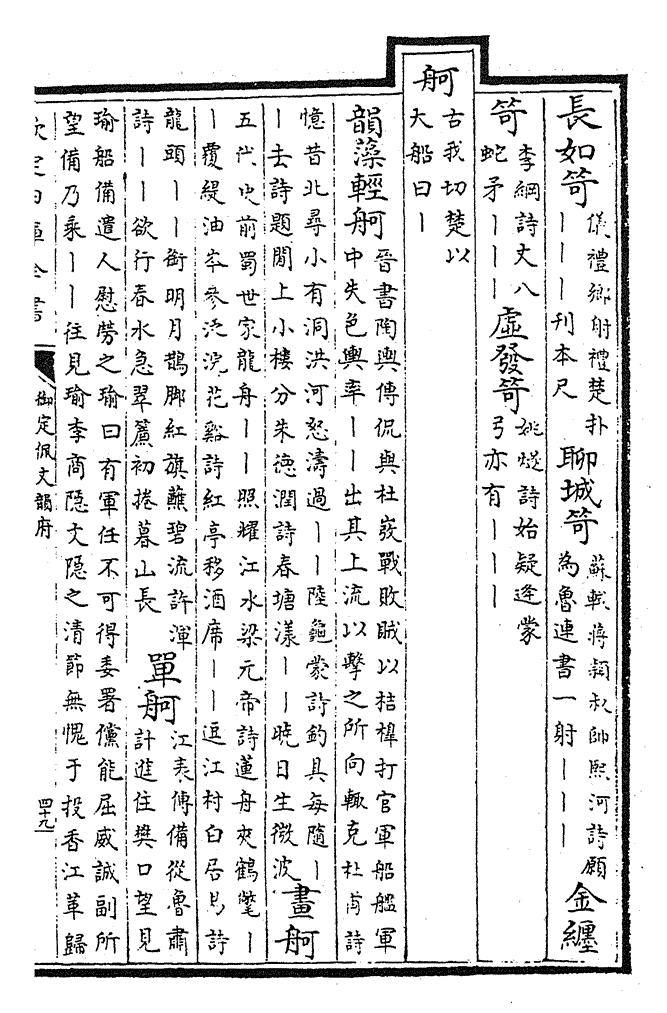 長如笴
儀禮鄉射禮楚扑
｜｜｜刊本尺
聊城笴
蘇軾蔣潁叔帥熙河詩願
為魯連書一射｜｜｜
金纏
笴
李綱詩丈八
蛇矛｜｜｜
虛發笴
姚燧詩始疑逢蒙
弓亦有｜｜｜
舸
古我切楚以
大船曰｜
韻藻輕舸
晉書陶輿傳侃與杜弢戰敗賊以桔橰打官軍船艦軍
中失色輿率｜｜出其上流以擊之所向輒克杜甫詩
憶昔北尋小有洞洪河怒濤過｜｜陸龜蒙詩釣具每隨｜
｜去詩題閒上小樓分朱德潤詩春塘漾｜｜曉日生微波
畫舸
五代史前蜀世家龍舟｜｜照耀江水梁元帝詩蓮舟夾鶴氅｜
｜覆緹油岑參泛浣花谿詩紅亭移酒席｜｜逗江村白居易詩
龍頭｜｜銜明月鵲脚紅旗蘸碧流許渾
詩｜｜欲行春水急翠簾初捲暮山長
單舸
江表傳備從魯肅
計進住樊口望見
瑜船備遣人慰勞之瑜曰有軍任不可得委署儻能屈威誠副所
望備乃乘｜｜往見瑜李商隱文隱之清節無愧于投香江革歸
欽定四庫全書
御定佩文韻府
四十九